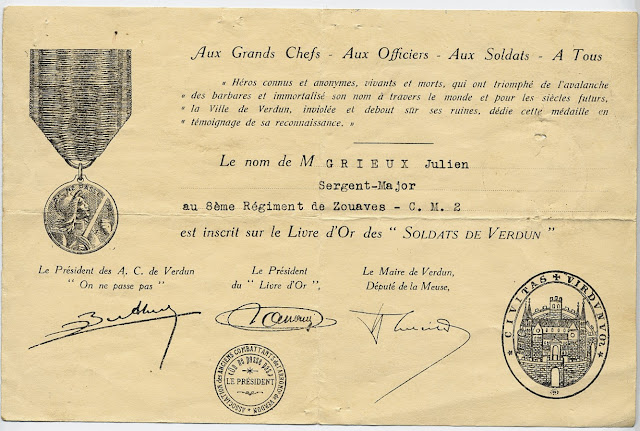 Aux Grands Chefs - Aux Officiers - Aux Soldats - A Tous
" Héros connus et anonymes, vivants et morts, qui ont triomphé de l'avalanche
« des barbares et immortalisé son nom à travers le monde et pour les siècles futurs,
« la Ville de Verdun, inviolée et debout sur ses ruines, dédie cette médaille en
« témoignage de sa reconnaissance. »
ON NE PASSE PAS
Le nom de M GRIEUX Julien
Sergent-Major
au 8ème Régiment de Zouaves - C. M. 2
est inscrit sur le Livre d'Or des " SOLDATS DE VERDUN "
Le Président des A. C. de Verdun
" On ne passe pas "
Le Président
du " Livre d'Or ",
Le Maire de Verdun,
Député de la Meuse,
ASSOCIATION des ANCIENS COMBATTANTS de VERDUN
On ne passe pas
LE PRÉSIDENT
CIVITAS VIRDVNVM